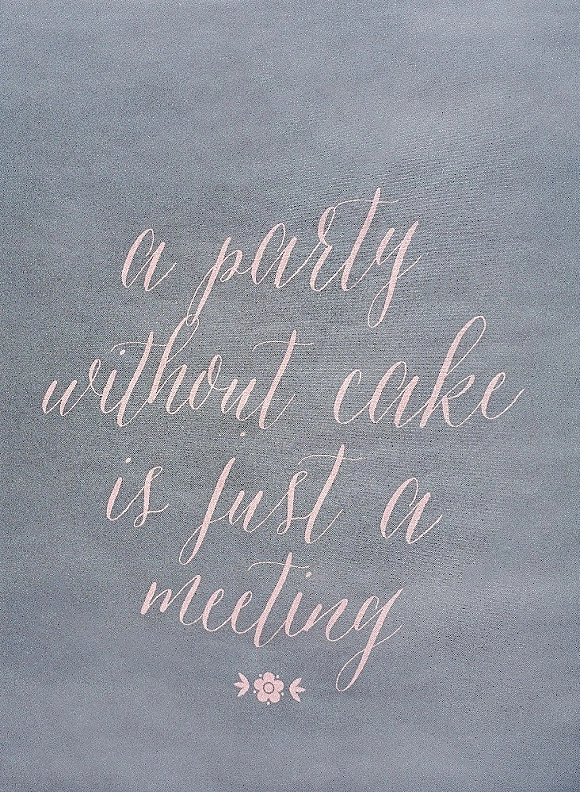 a party
without cake
is just a
meeting